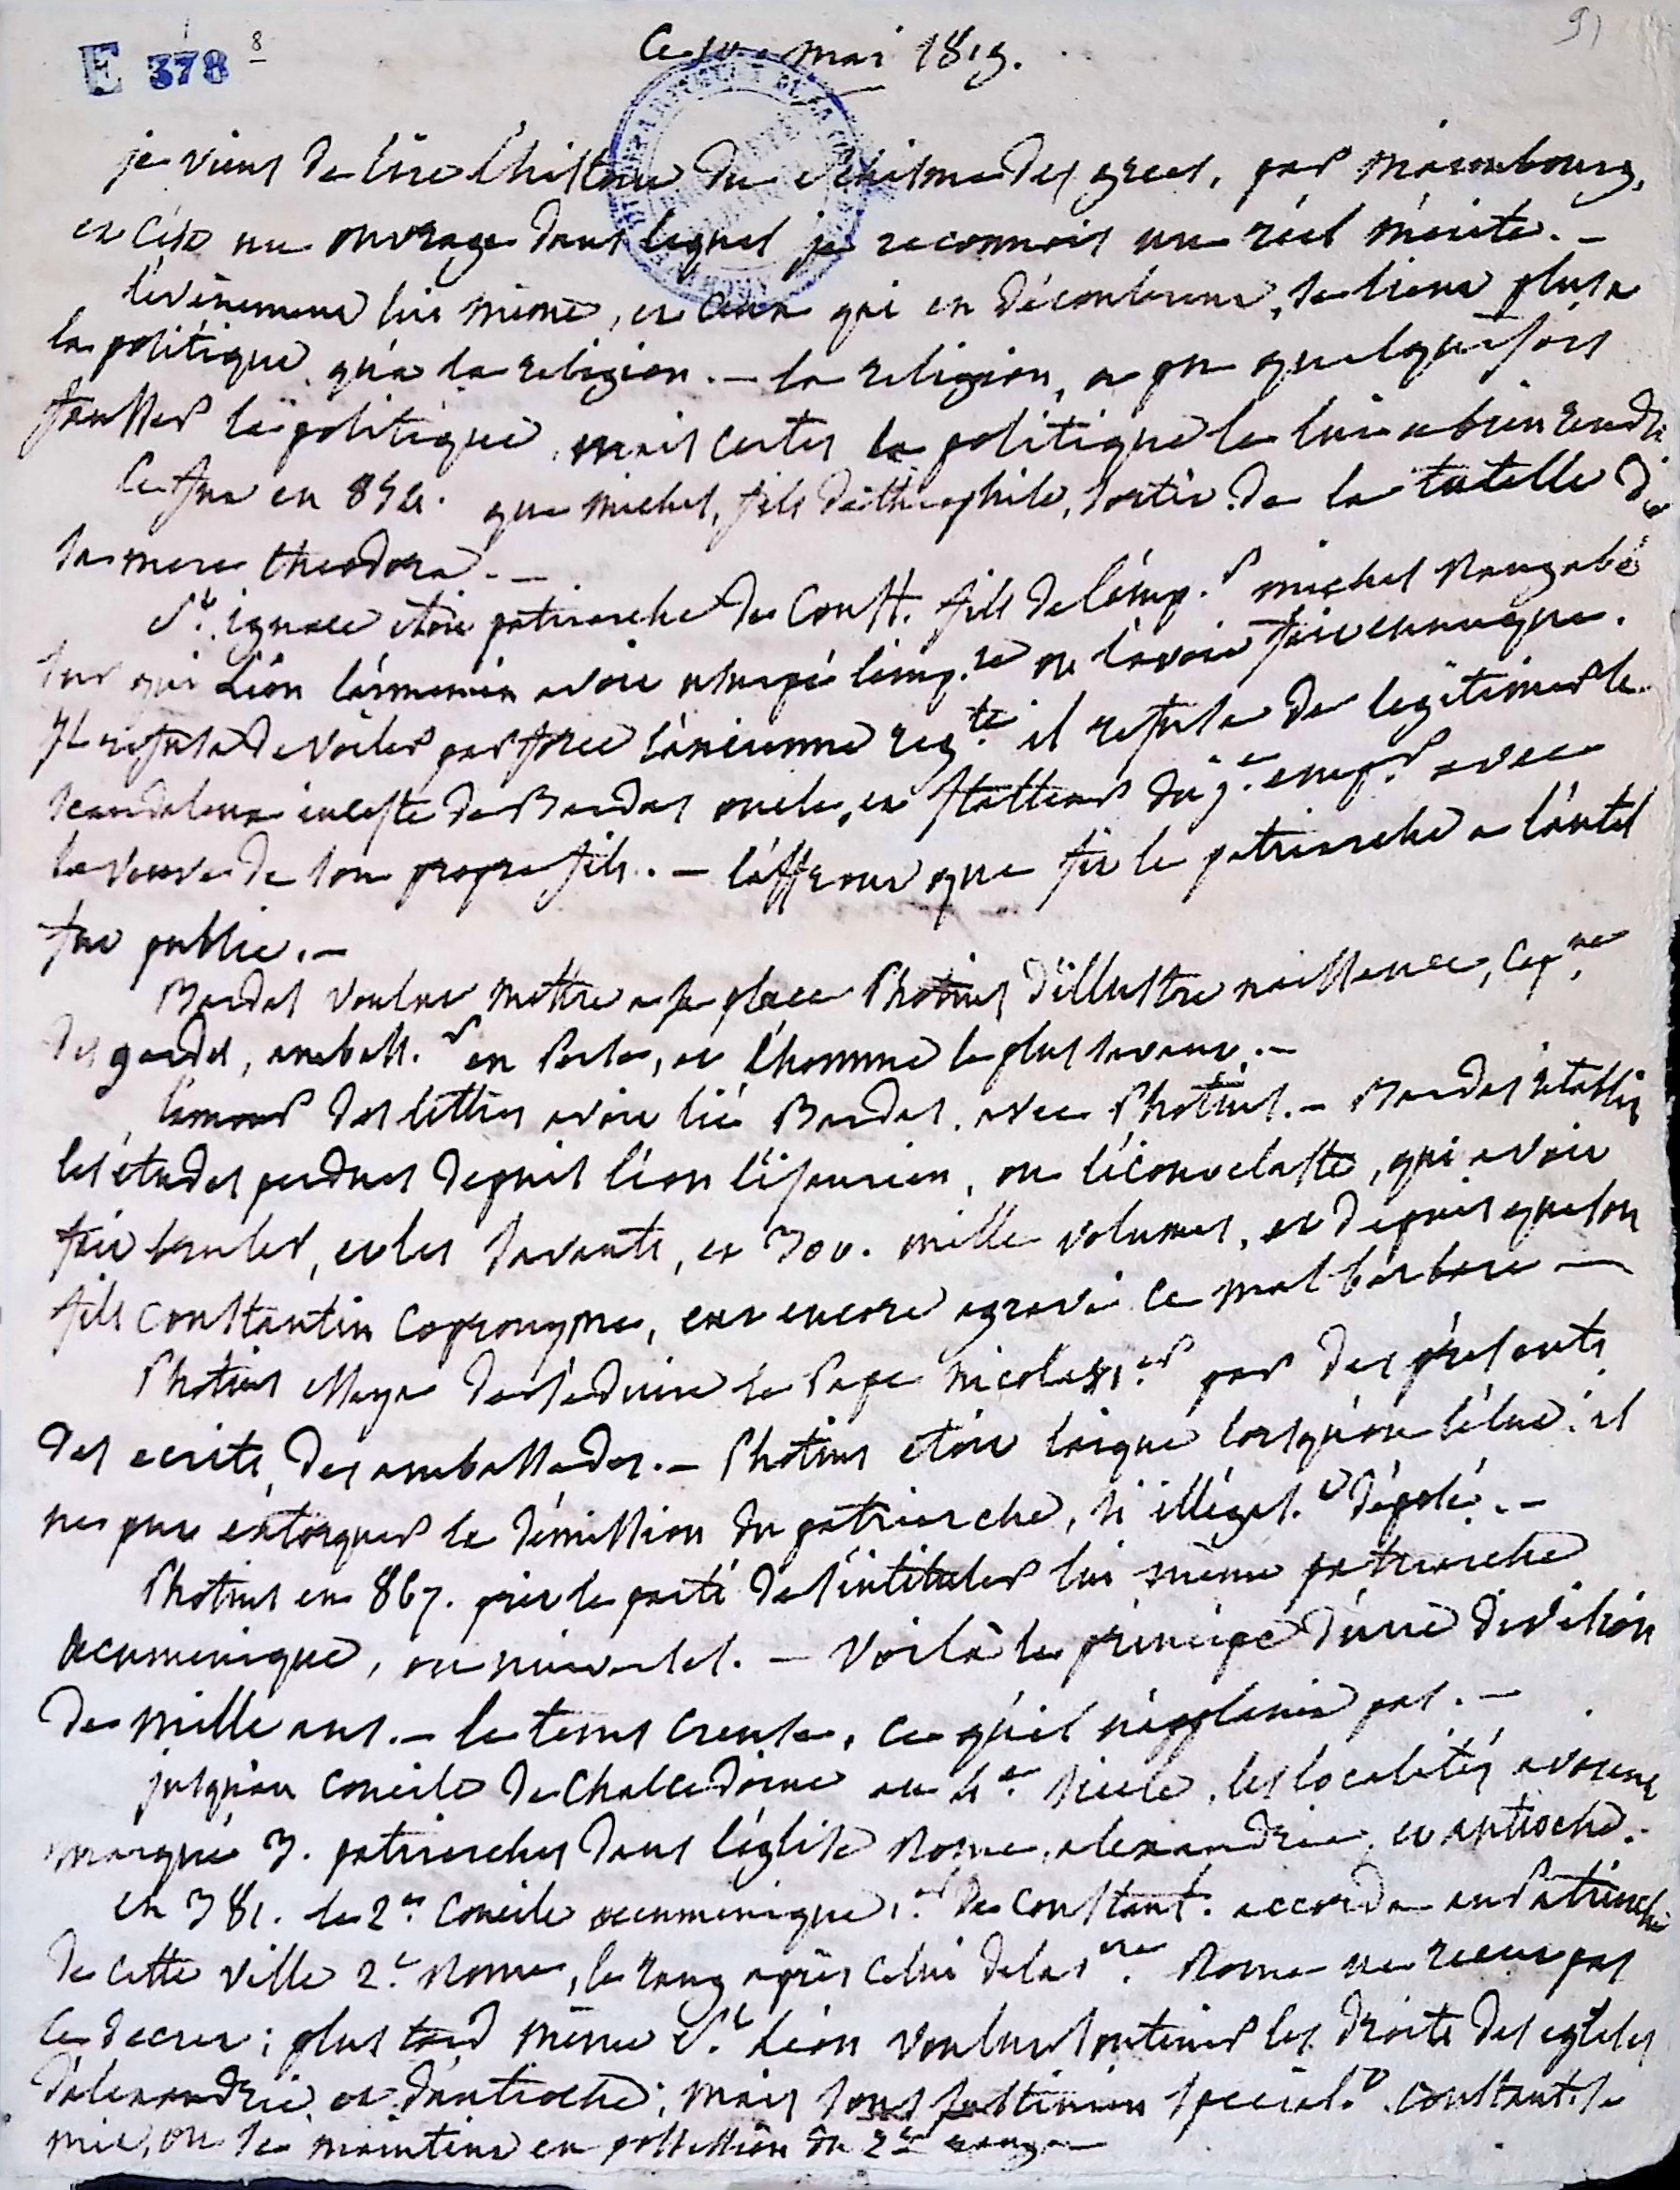 E 378 8
Ce 10. mai 1819.
je viens de lire l'histoire du schisme des grecs, par Maimbourg,
et c'est un ouvrage dans lequel je reconnois un réel mérite. -
l'évènement lui même, et ceux qui en découlerent, se lient plus a
la politique qu'a la religion. - la religion, a pu quelques fois
fausser la politique, mais certes la politique le lui a bien rendu
Ce fut en 854. que Michel, fils de théophile, sortit de la tutelle de
sa mere theodora. -
St. ignace étoit patriarche de Const. fils de l'emp.r michel Rangabé
sur qui Léon l'armenien avoit usurpé l'emp.re on l'avoit fait eunuque.
Il refusa de voiler par force l'ancienne reg.te il refusa de legitimer le
scandaleux inceste de Bardas oncle, et flatteur du j.e emp.r avec
la veuve de son propre fils. - l'affront que fit le patriarche a l'autel
fut public. -
Bardas voulut mettre a sa place Photius d'illustre naissance, cap.ne
des gardes, ambass.r en Perse, et l'homme le plus savant. -
l'amour des lettres avoit lié Bardas, avec Photius. - Bardas rétablit
les études perdues depuis léon l'isaurien, ou l'iconoclaste, qui avoit
fait bruler, et les savants, et 300. mille volumes, et depuis que son
fils Constantin Copronyme, eut encore agravé ce mal barbare -
Photius essaya de séduire le Pape Nicolas 1.er par des présents
des ecrits, des ambassades. - Photius étoit laique lorsqu'on l'élut. il
ne put extorquer la démission du patriarche, si illégal.t déposé. -
Photius en 867. prit le parti de s'intituler lui même patriarche
œcumenique, ou universel. - Voilà le principe d'une division
de mille ans. - le tems creuse, ce qu'il n'applanit pas. -
jusqu'au concile de Chalcedoine au 4.e siecle, les localités avoient
marqué 3. patriarches dans l'église Rome, alexandrie, et antioche.
en 381. le 2.e Concile œcumenique 1.er de Constant. accorda au Patriarche
de cette ville 2.e Rome, le rang après celui de la 1.ere Rome ne recut pas
ce decret ; plus tard même St. Léon voulut soutenir les droits des eglises
d'alexandrie et d'antioche ; mais sous justinien special.t Constant. se
mit, ou se maintint en possession du 2.e rang -